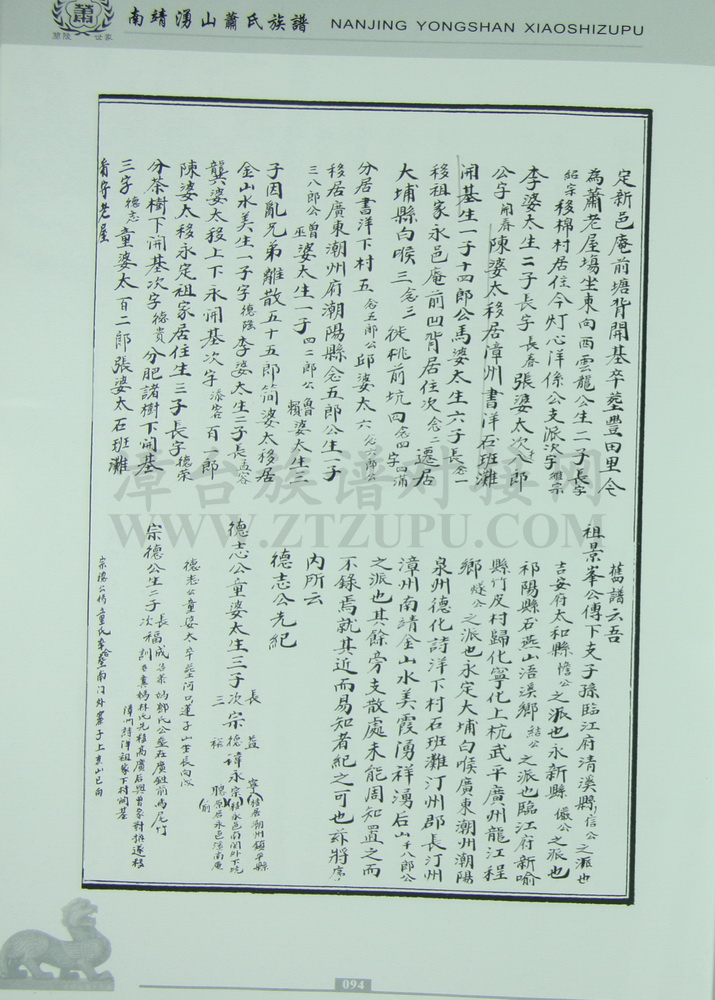 蕭
蘭陵 世家
南靖湧山蕭氏族譜
NANJING YONGSHAN XIAOSHIZUPU
定新邑庵前塘背開基卒塟豐田里仝
為蕭老屋塲坐東向西雲龍公生二子長字
紹宗移棉村居住今灯心洋係公支派次字
李婆太生二子長字長春張婆太次八郎
公字開春陳婆太移居漳州書洋石班灘
開基生一子十四郎公馬婆太生六子長念一
移祖家永邑庵前凹背居住次念二遷居
大埔縣白喉三念三徙桃前坑四念四字四滿
分居書洋下村五念五郎公邱婆太六念六郎公
移居廣東潮州府潮陽縣念五郎公生一子
三八郎公曾巫婆太生一子四二郎公曾賴婆太生三
子因亂兄弟離散五十五郎简婆太移居
金山水美生一子字德隆李婆太生二子長孟容
龔婆太移上下永開基次字添容百一郎
陳婆太移永定祖家居住生三子長字德荣
分茶樹下開基次字德貴分肥諸樹下開基
三字德志童婆太百二郎張婆太石班灘
看守老屋
舊譜云吾
祖景峯公傳下支子孫臨江府清溪縣信公之派也
吉安府太和縣憺公之派也永新縣儼公之派也
祁陽縣石燕山浯溪鄉結公之派也臨江府新喻
縣竹皮村歸化寧化上杭武平廣州龍江程
鄉燧公之派也永定大埔白喉廣東潮州潮陽
泉州德化詩洋下村石班灘汀州郡長汀州
漳州南靖金山水美霞湧祥湧后山千八郎公
之派也其餘旁支散處未能周知置之而
不錄焉就其近而易知者紀之可也兹將序
内所云
德志公先紀
德志公童婆太生三子長益次宗德諱永宗三裕
德志公童婆太卒塟河口蓮子山坐艮向
宗德公生二子長福成次福
宗德公傅童氏卒塟南门外寨子上
漳台族谱对接网
WWW.ZTZUPU.COM
094